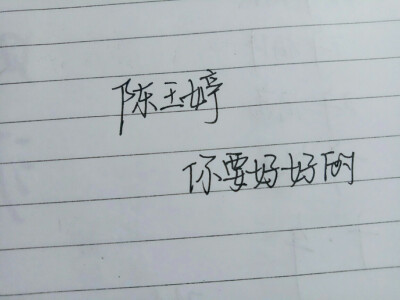 陈玉婷
你要好好的